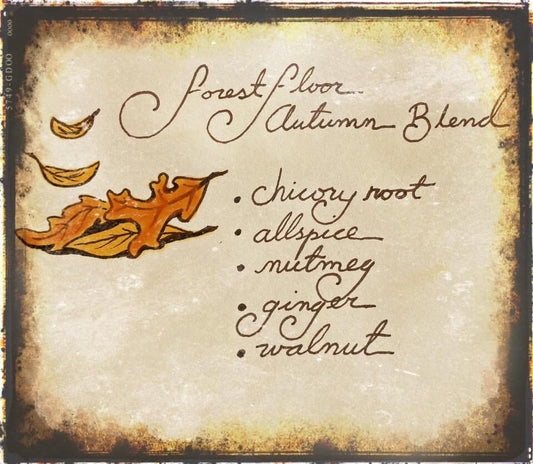 forest floor
Autumn Blend
• chicory root
• allspice
• nutmeg
• ginger
• walnut